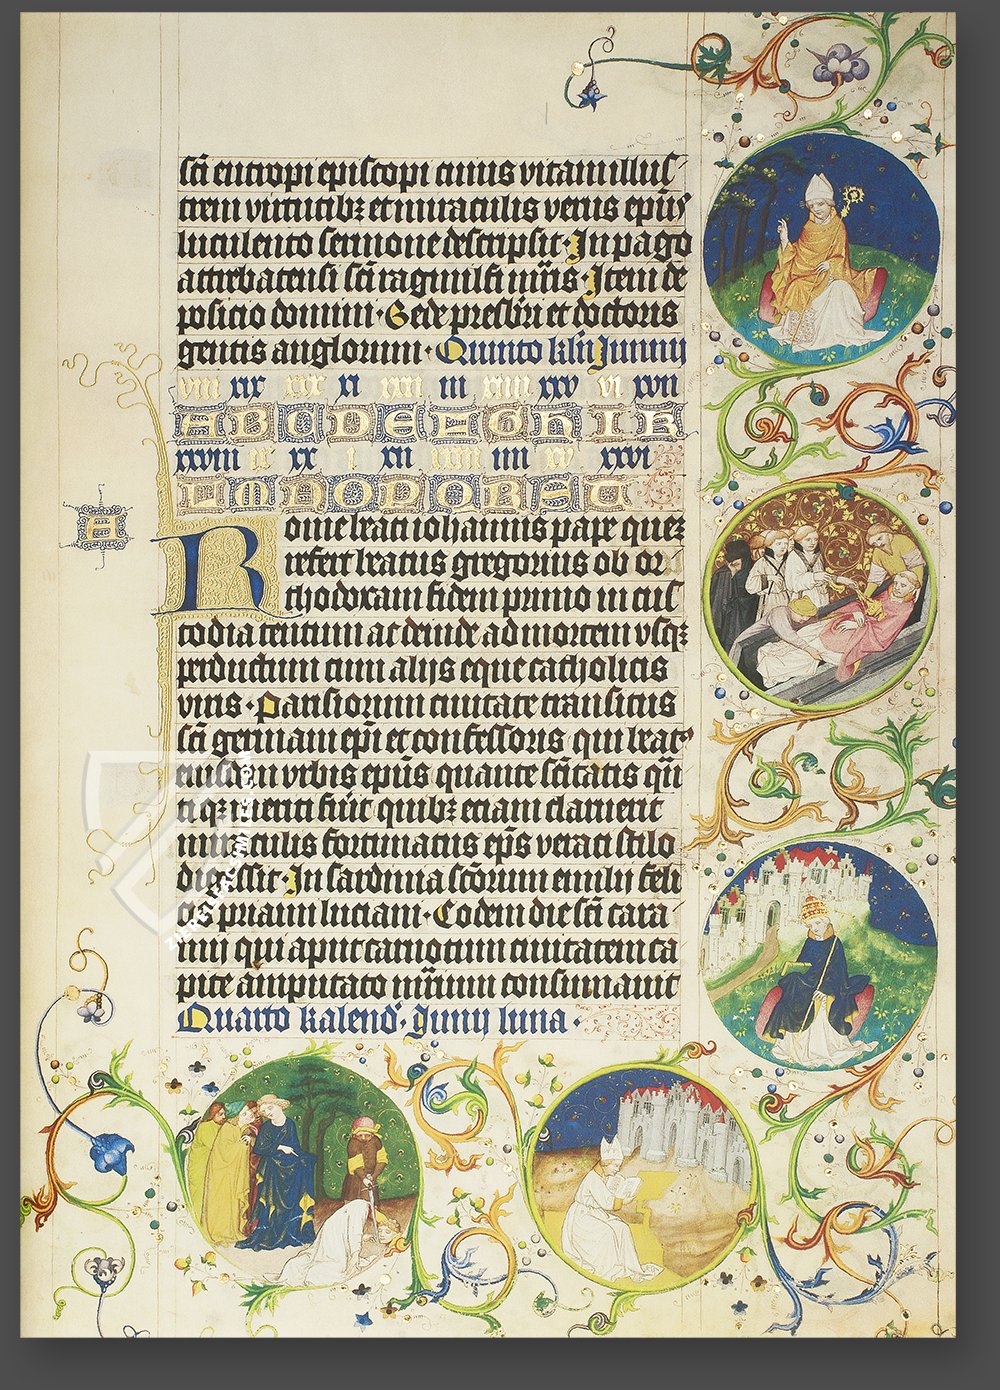 sci eutropi episcopi cuius vitam illus
trem virtutibȝ et miraculis verus ep̄us
luculento sermone descripsit · In pago
attrebatensi sci ragnulfi m̄ris · Item de
posicio domini · Bede presbr̄i et doctoris
gentis anglorum · Quinto kl̄n Junnij
viii xix xi iii xiiii xxv vi xvii
A B C D E F G H I K
xxviii ix xx i xii iiii xv xxvi
L M N O P Q R S T
A
Rome beati iohannis pape quez
refert beatus gregorius ob or
thodoxam fidem primo in cus
todia tentum ac deinde ad mortem vsqȝ
perductum cum alijs eque catholicis
viris · Parisiorum ciuitate transitus
sci germani epī et confessoris qui beat9
eiusdem vrbis ep̄us quante sc̄itatis q̄n
tiqȝ meriti fiūt quibȝ etiam claruerit
miraculis fortunatus ep̄s veraci stilo
digessit · In sardinia sc̄orum emilij feli
cis priami luciani · Eodem die sci cara
uni qui aput carnotum ciuitatem ca
pite amputato m̄rium consumauit
Quarto kalend̄ · Junij luna ·
ZIEREIS FACSIMILES.COM